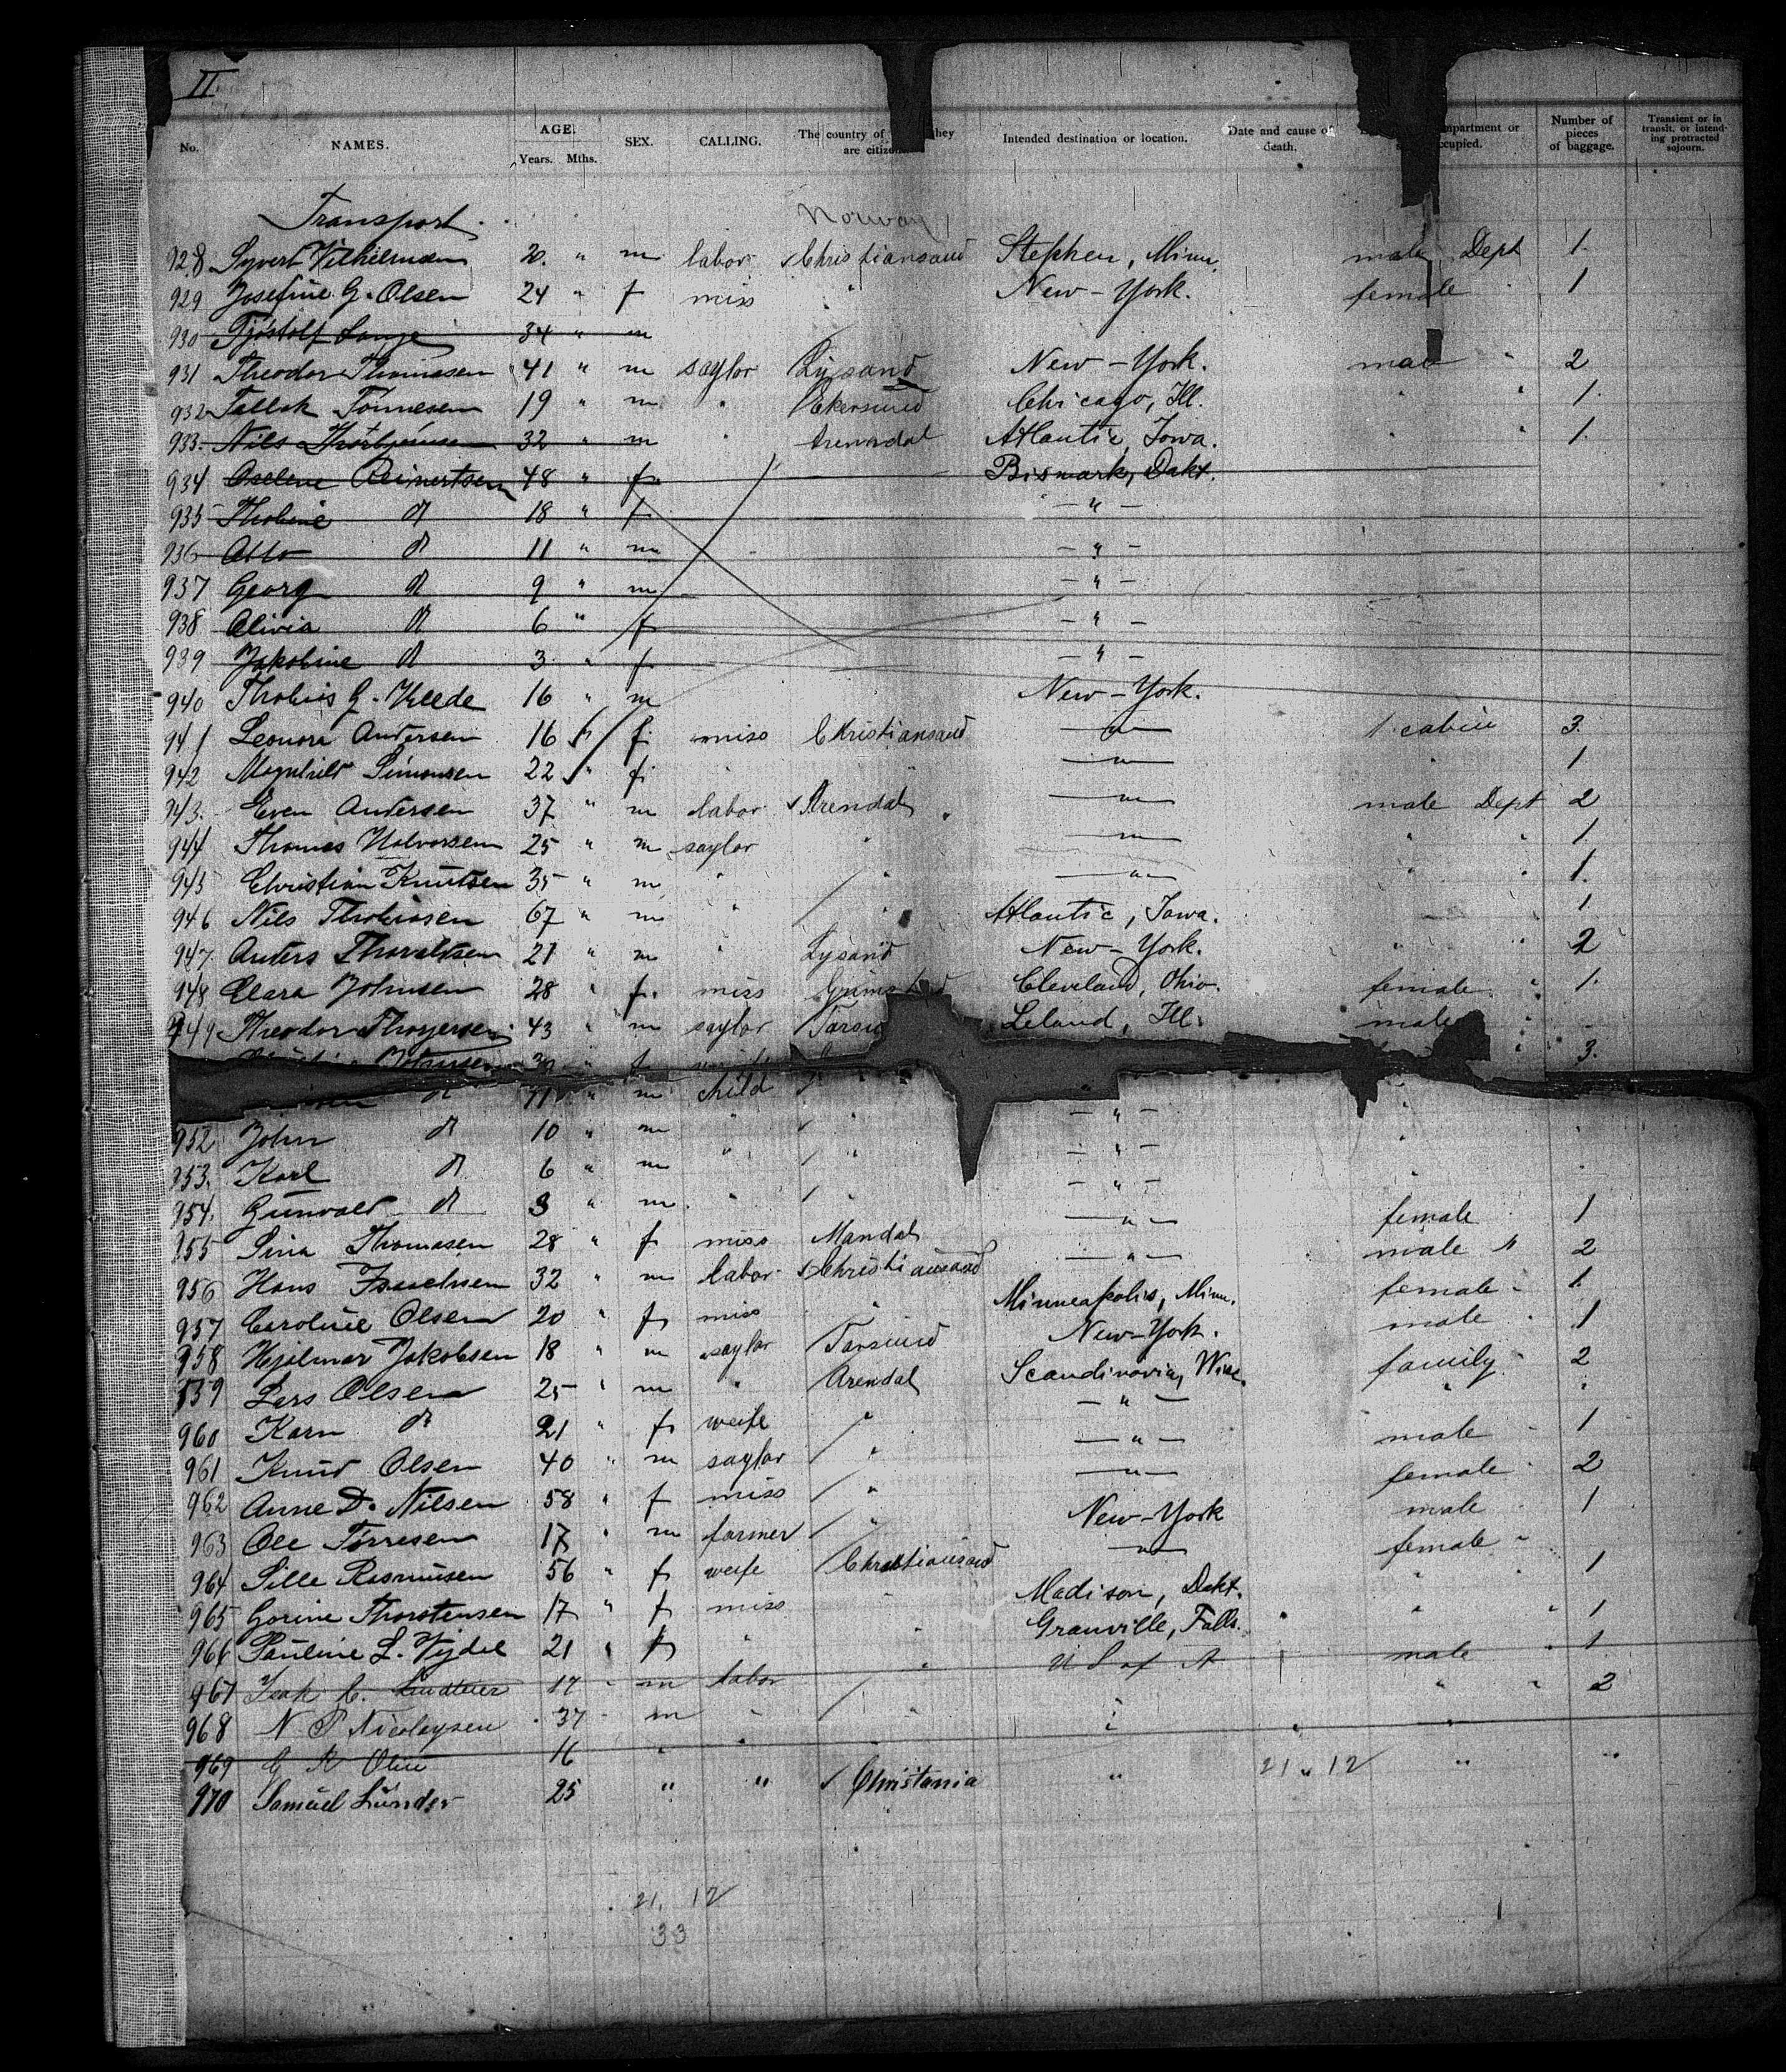 II.
No. NAMES. AGE. Years. Mths. SEX. CALLING. The country of they are citizens. Intended destination or location. Date and cause of death. compartment or occupied. Number of pieces of baggage. Transient or in transit, or intending protracted sojourn.
Transport. Norway
928 Syvert Vilhelmsen 20. " m labor Christiansand Stephen, Minn. male Dept 1.
929 Josefine G. Olsen 24 " f miss " New-York. female " 1
930 Tjöstolf Lange 34 " m
931 Theodor Thomasen 41 " m saylor Lysand New-York. male " 2
932 Tallak Tönnesen 19 " m " Ekersund Chicago, Ill. " " 1.
933. Nils Thorbjörnsen 32 " m " Arendal Atlantic, Iowa. " " 1.
934 Oselene Reinertsen 48 " f Bismark, Dakt.
935 Thobine d 18 " f - " -
936 Otto d 11 " m - " -
937 Georg d 9 " m - " -
938 Olivia d 6 " f - " -
939 Jakobine d 3 " f - " -
940 Thobias G. 16 " m New-York.
941 Leonora Andersen 16 " f miss Christiansand - " - 1. cabin 3.
942 Magnhild Simonsen 22 " f " " - " - " 1
943. Even Andersen 37 " m labor Arendal - " - male Dept 2
944 Thomas Halvorsen 25 " m saylor " - " - " " 1.
945 Christian Knutsen 35 " m " " - " - " " 1.
946 Nils Thobiasen 67 " m " " Atlantic, Iowa. " 1
947. Anders Thorvaldsen 21 " m " Lysand New-York. " " 2
948 Clara Johnsen 28 " f. miss Grimstad Cleveland, Ohio. female " 1.
949 Theodor Thoyersen 43 " m saylor Farsu Leland, Ill. male "
Johnsen 39 " f " 3.
d 11 " m child " "
952 John d 10 " m " " - " - "
953. Karl d 6 " m " " - " - "
954. Gunvald d 3 " m " " - " -
955 Sina Thomasen 28 " f miss Mandal - " - female 1
956 Hans Isachsen 32 " m labor Christiansand - " - male " 2
957 Caroline Olsen 20 " f miss " Minneapolis, Minn. female " 1.
958 Hjalmar Jakobsen 18 " m saylor Farsund New-York. male " 1
959 Lars Olsen 25 " m " Arendal Scandinavia, Wisc. family " 2
960 Karn d 21 " f weife " - " - " "
961 Knud Olsen 40 " m saylor " - " - male " 1
962 Anne D. Nilsen 58 " f miss " - " - female " 2
963 Ole Törresen 17 " m farmer " New-York male " 1
964 Sille Rasmusen 56 " f weife Christiansand - " - female "
965 Gorine Thorstensen 17 " f miss " Madison, Dakt. " 1
966 Pauline L. Vigdel 21 " f " " Granville, Falls. " " 1
967 Isak C. 17 " m labor " U S of A male " 1
968 N P Nicolaysen 37 " m " " " " " 2
969 16 " " " "
970 Samuel Lunder 25 " " Christania " 21 " 12 " "
21. 12
33